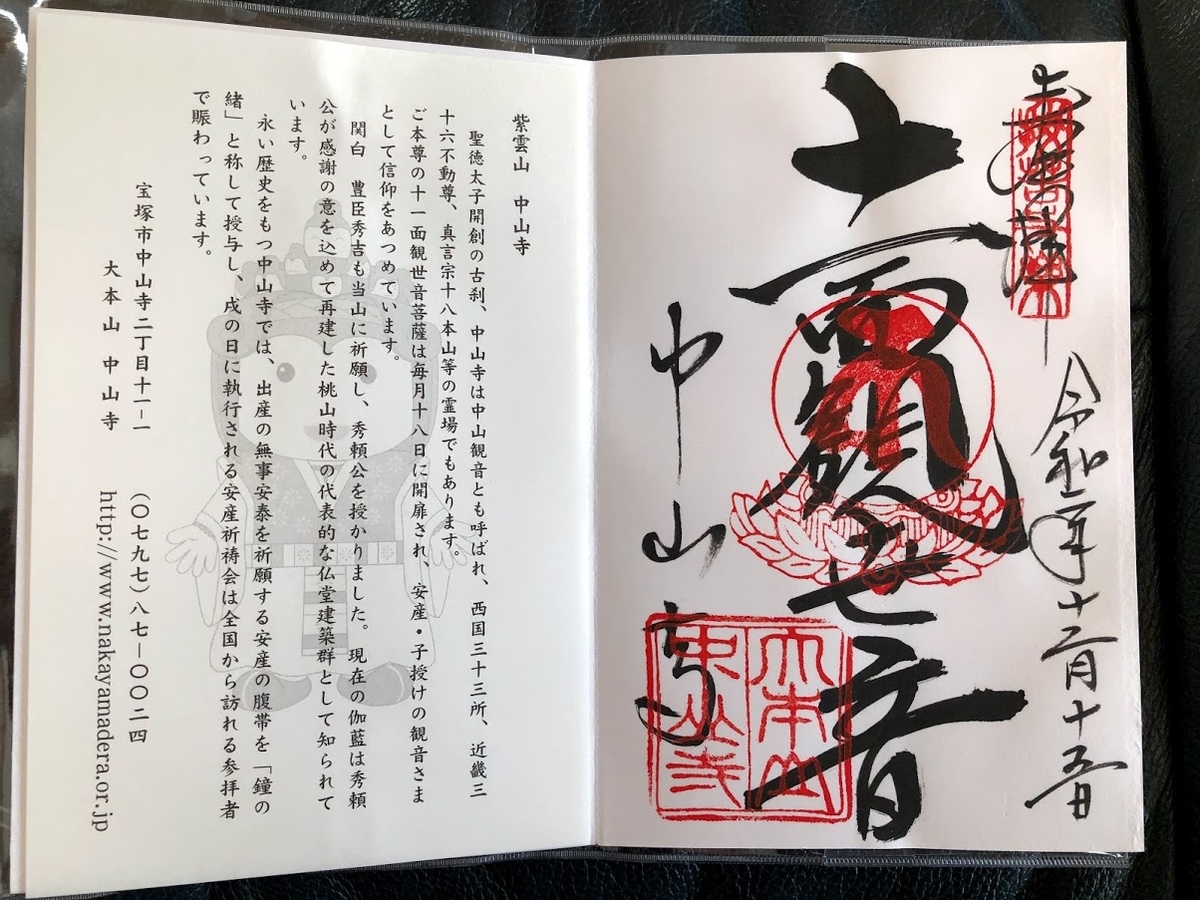 令和二年十二月十五日
十一面観世音
中山寺
大本山
中山寺
紫雲山 中山寺
聖徳太子開創の古刹、中山寺は中山観音とも呼ばれ、西国三十三所、近畿三
十六不動尊、真言宗十八本山等の霊場でもあります。
ご本尊の十一面観世音菩薩は毎月十八日に開扉され、安産・子授けの観音さま
として信仰をあつめています。
関白 豊臣秀吉も当山に祈願し、秀頼公を授かりました。現在の伽藍は秀頼
公が感謝の意を込めて再建した桃山時代の代表的な仏堂建築群として知られて
います。
永い歴史をもつ中山寺では、出産の無事安泰を祈願する安産の腹帯を「鐘の
緒」と称して授与し、戌の日に執行される安産祈祷会は全国から訪れる参拝者
で賑わっています。
宝塚市中山寺二丁目十一−一 （〇七九七）八七−〇〇二四
大本山 中山寺 http://www.nakayamadera.or.jp